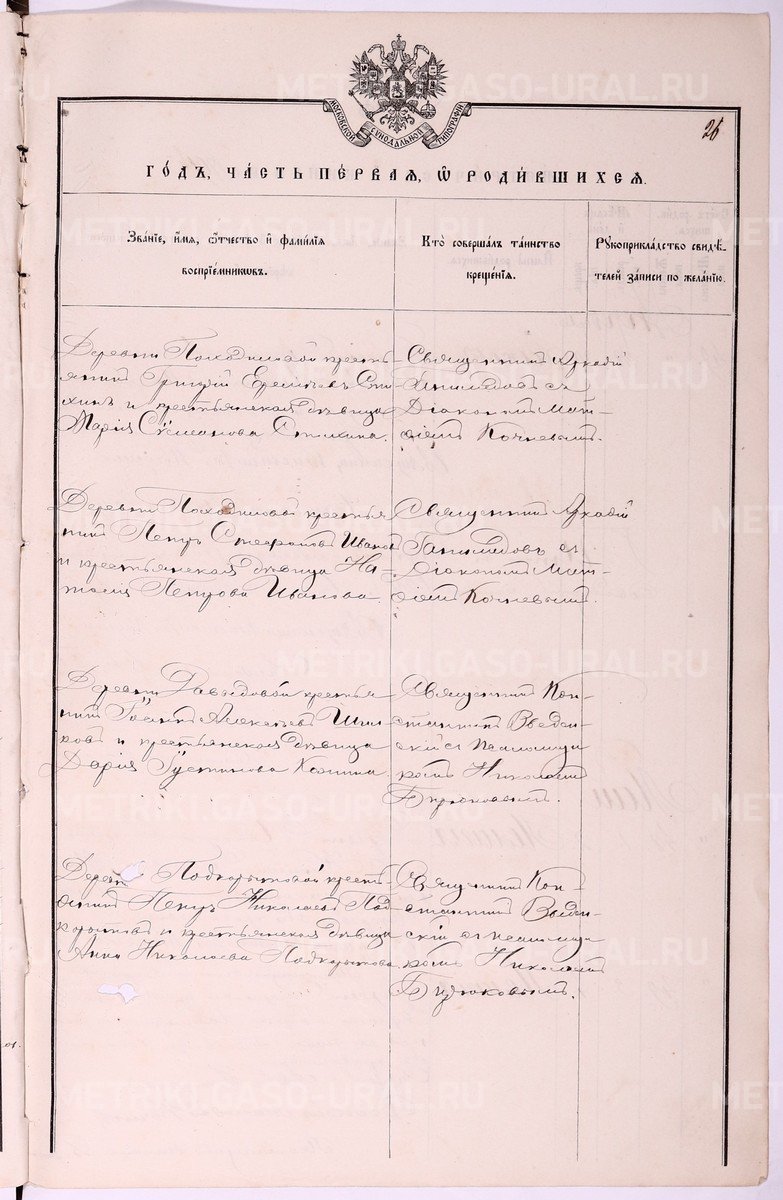 МОСКОВСКОЙ СѴНОДАЛЬНОЙ ТИПОГРАФІИ
26
ГО́ДЪ, ЧА́СТЬ ПЕ́РВАЯ, Ѡ҆ РОДИ́ВШИХСЯ.
Зва́ніе, и҆́мя, ѻ҆́тчество и҆ фами́лїя
воспрїе́мникѡвъ.
Кто̀ соверша́лъ та́инство
креще́нїя.
Рꙋкоприкла́дство свидѣ́-
телей за́писи по жела́нїю.
Деревни Походиловой кресть-
янинъ Григорій
и крестьянская дѣвица
Марія
Священникъ Аркадій
Ганимедовъ съ
Діакономъ Мат-
ѳіемъ Кочневымъ.
Деревни Походиловой крестья-
нинъ Петръ Стефановъ Ивановъ
и крестьянская дѣвица На-
талія Петрова Иванова.
Священникъ Аркадій
Ганимедовъ съ
Діакономъ Мат-
ѳіемъ Кочневымъ.
Деревни Давыдовой крестья-
нинъ Іоаннъ Алексѣевъ
и крестьянская дѣвица
Дарія Іустинова
Священникъ Кон-
стантинъ Введен-
скій съ псаломщи-
комъ Николаемъ
Бирюковымъ.
Деревни Подкорытовой кресть-
янинъ Петръ Николаевъ Под-
корытовъ и крестьянская дѣвица
Анна Николаева Подкорытова.
Священникъ Кон-
стантинъ Введен-
скій съ псаломщи-
комъ Николаемъ
Бирюковымъ.
METRIKI.GASO-URAL.RU